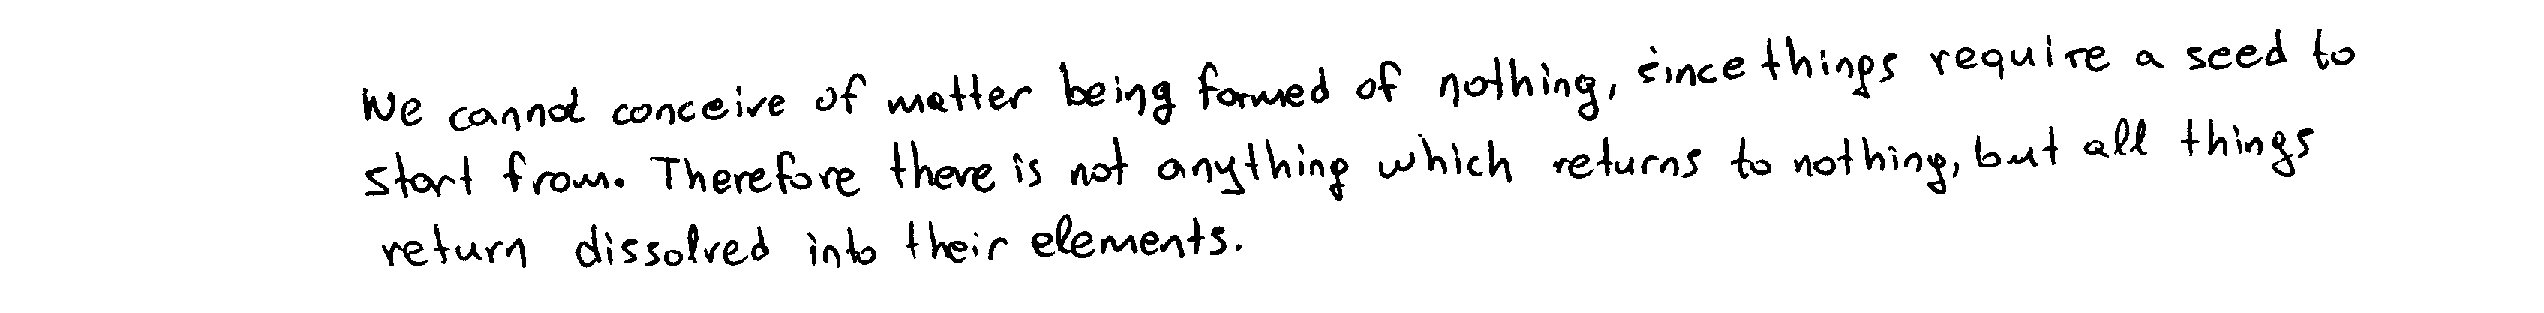 We cannot conceive of matter being formed of nothing, since things require a seed to
start from. Therefore there is not anything which returns to nothing, but all things
return dissolved into their elements.